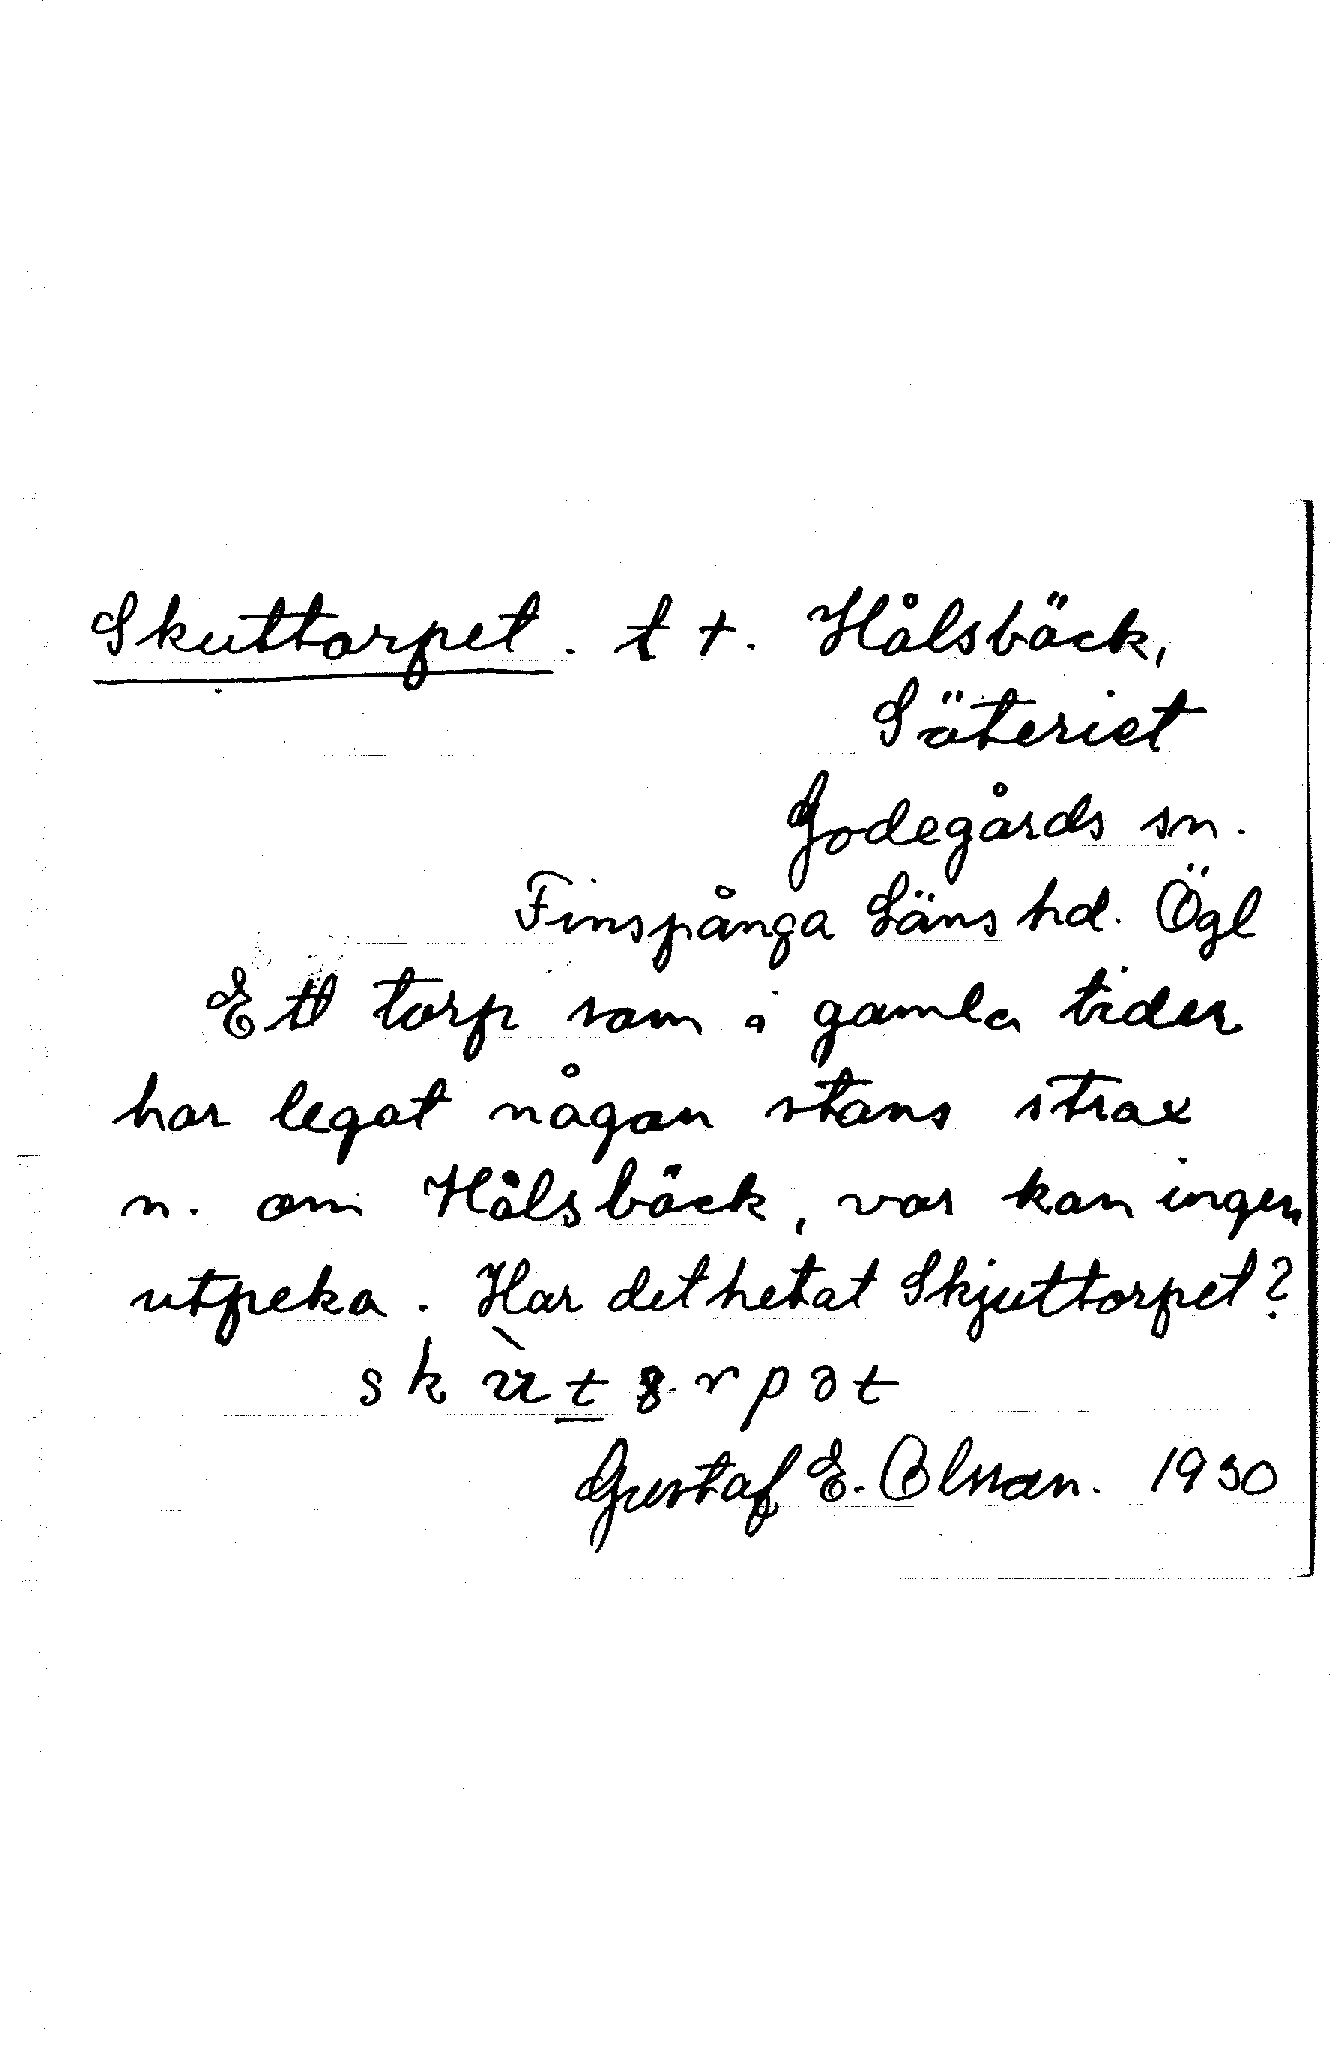 Skuttorpet. t †. Hålsbäck,
Säteriet
Godegårds sn.
Finspånga Läns hd. Ögl
Ett torp som i gamla tider
har legat någon stans strax
n. om Hålsbäck, var kan ingen
utpeka. Har det hetat Skjuttorpet?
Gustaf E. Olsson. 1930